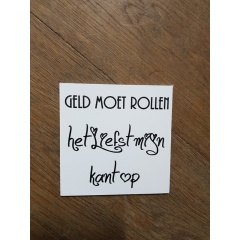 GELD MOET ROLLEN
het liefst mijn
kant op